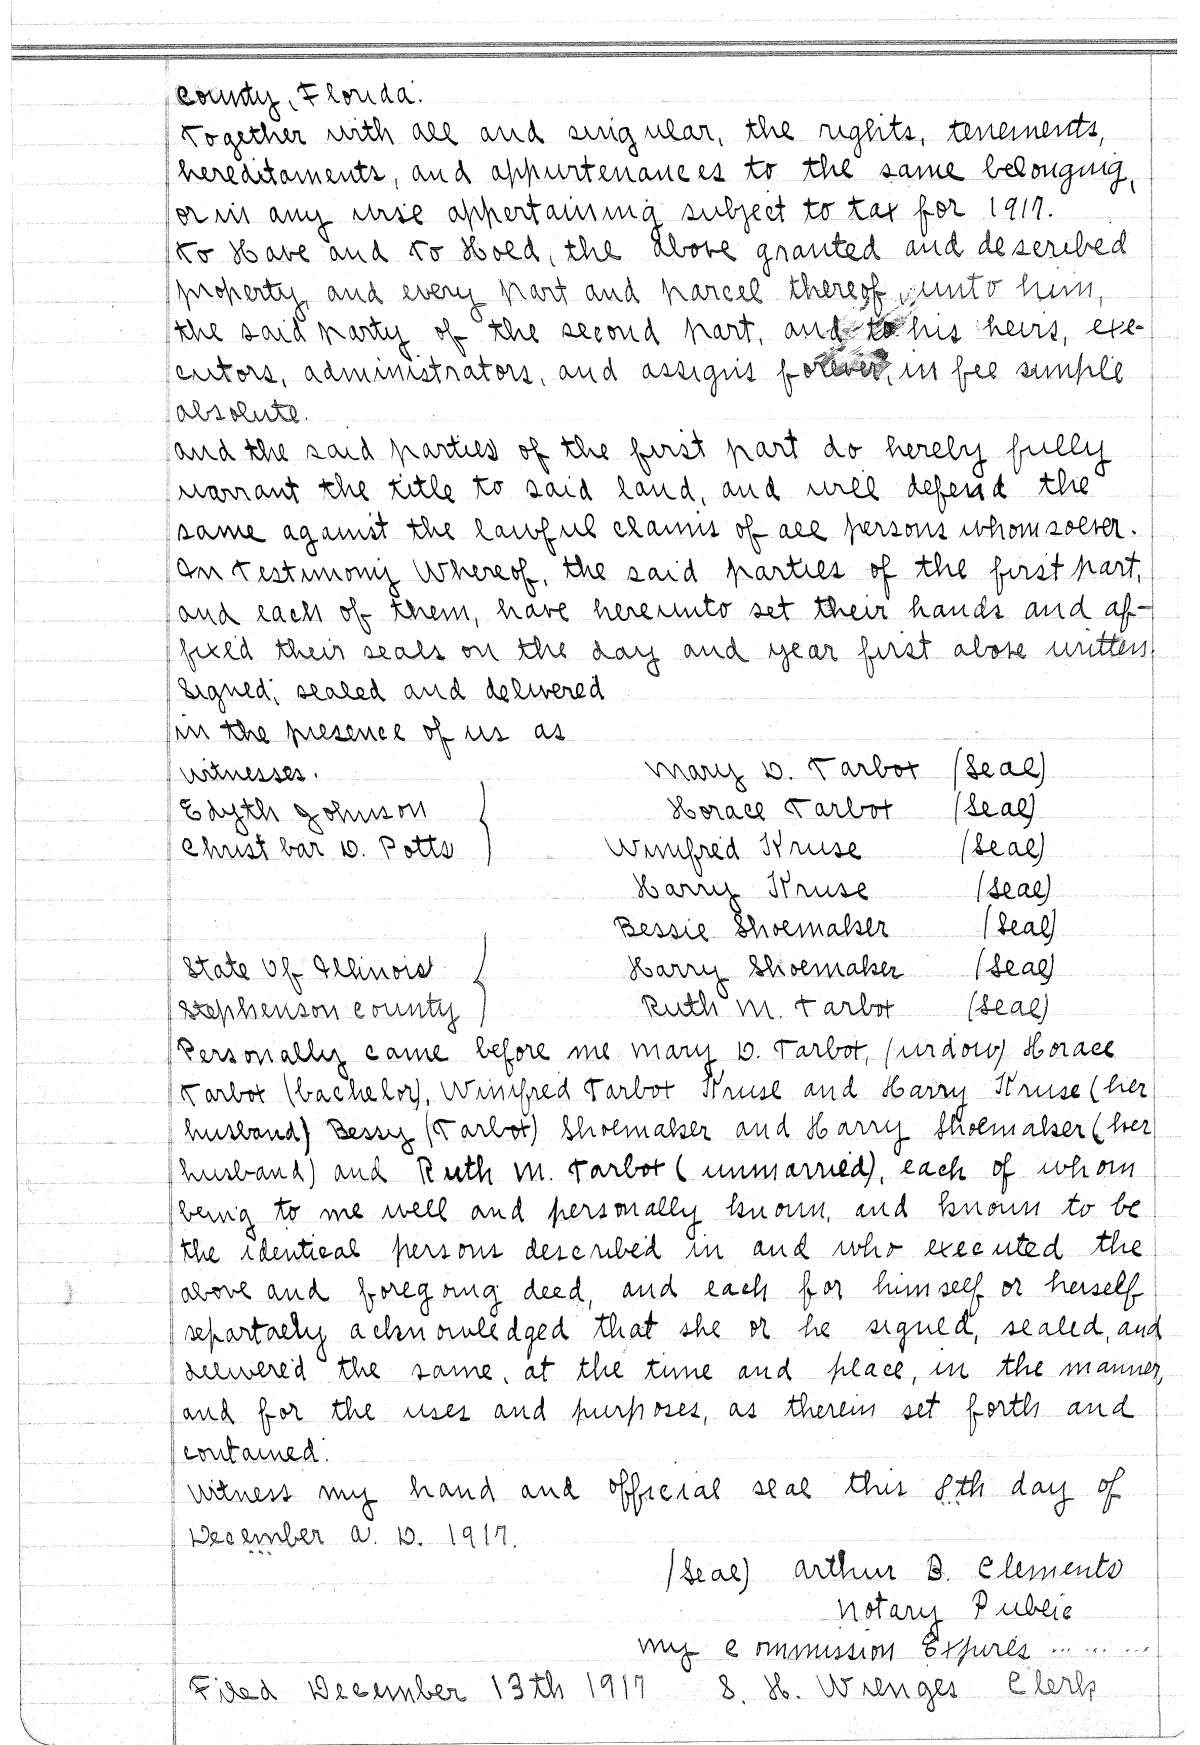 County, Florida.
Together with all and singular, the rights, tenements,
hereditaments, and appurtenances to the same belonging,
or in any wise appertaining subject to tax for 1917.
To Have and To Hold, the above granted and described
property, and every part and parcel thereof, unto him,
the said party of the second part, and to his heirs, exe-
cutors, administrators, and assigns forever, in fee simple
absolute.
and the said parties of the first part do hereby fully
warrant the title to said land, and will defend the
same against the lawful claims of all persons whomsoever.
In Testimony Whereof, the said parties of the first part,
and each of them, have hereunto set their hands and af-
fixed their seals on the day and year first above written
Signed, sealed and delivered
in the presence of us as
witnesses. Mary D. Tarbot (Seal)
Edyth Johnson Horace Tarbot (Seal)
Christ bar D. Potts Winifred Kruse (Seal)
Harry Kruse (Seal)
Bessie Shoemaker (Seal)
State Of Illinois Harry Shoemaker (Seal)
Stephenson County Ruth M. Tarbot (Seal)
Personally came before me Mary D. Tarbot, (widow) Horace
Tarbot (bachelor), Winifred Tarbot Kruse and Harry Kruse (her
husband) Bessy (Tarbot) Shoemaker and Harry Shoemaker (her
husband) and Ruth M. Tarbot (unmarried), each of whom
being to me well and personally known, and known to be
the identical persons described in and who executed the
above and foregoing deed, and each for himself or herself
separtaely acknowledged that she or he signed, sealed, and
delivered the same, at the time and place, in the manner,
and for the uses and purposes, as therein set forth and
contained.
Witness my hand and official seal this 8th day of
December A. D. 1917.
(Seal) Arthur B. Clements
Notary Public
My Commission Expires .... ... ...
Filed December 13th 1917 S. H. Wienges Clerk